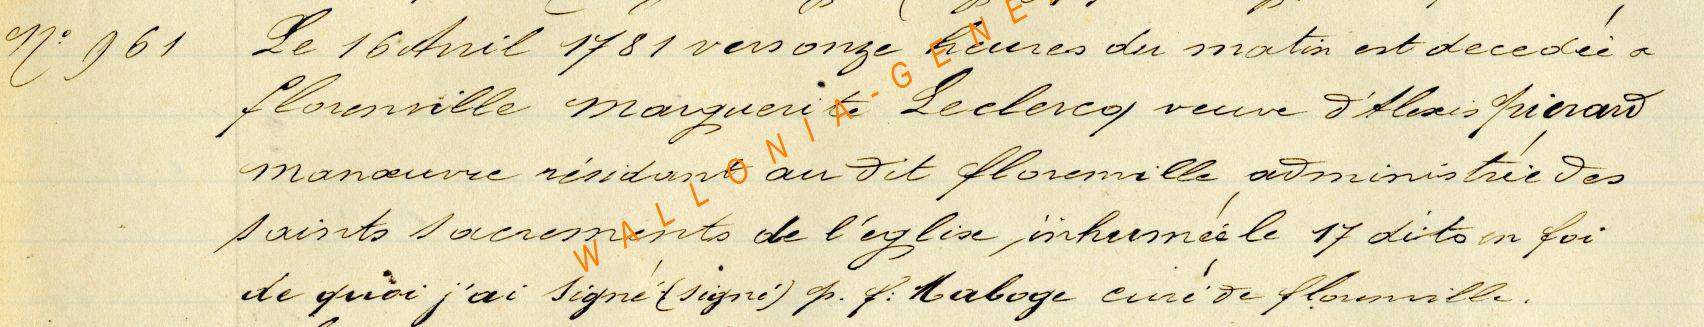 N° 961 Le 16 Avril 1781 vers onze heures du matin est decedée a
florenville Marguerite Leclercq veuve d'Alexis pierard
manœuvre résidant au dit florenville administrée des
saints sacrements de l'église, inhumée le 17 dito en foi
de quoi j'ai signé (signé) p. f: Laboge curé de florenville.
WALLONIA-GENE